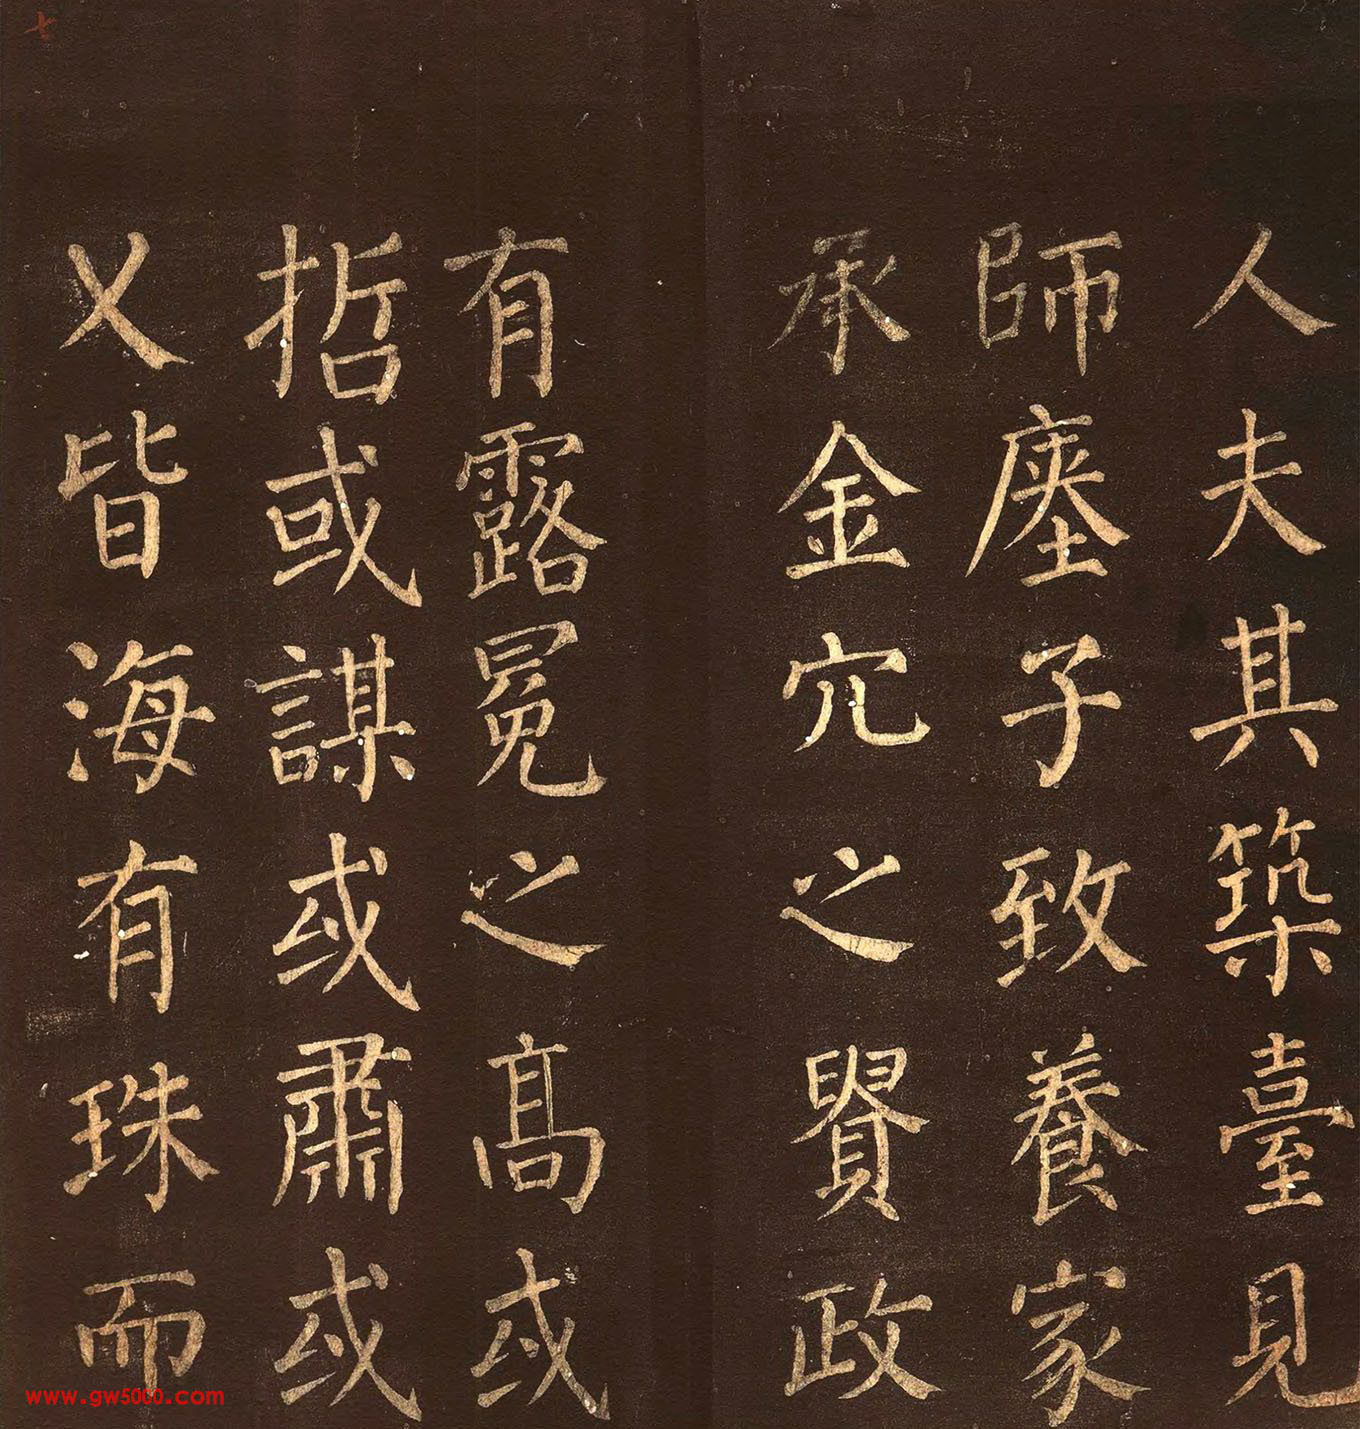 人夫其築臺見
師瘞子致養家
承金穴之賢政
有露冕之高或
哲或謀或肅或
乂皆海有珠而
www.gw5000.com